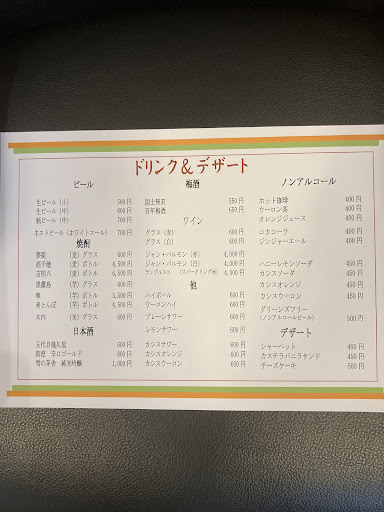 ドリンク＆デザート
ビール
生ビール（小） 500円
生ビール（中） 600円
瓶ビール（中） 700円
ネストビール（ホワイトコール） 700円
焼酎
（麦）グラス 600円
高千穂 （麦）ボトル 4,500円
吉四六 （麦）ボトル 6,500円
黒霧島 （芋）グラス 600円
（芋）ボトル 3,500円
赤とんぼ （芋）ボトル 4,500円
木内 （米）グラス 600円
日本酒
五代目儀久屋 600円
真澄 辛口ゴールド 800円
雪の茅舎 純米吟醸 1,000円
梅酒
国士無双 550円
百年梅酒 650円
ワイン
グラス（赤） 600円
グラス（白） 600円
ジャン・バルモン（赤） 4,000円
ジャン・バルモン（白） 4,000円
（スパークリング赤） 4,000円
他
ハイボール 600円
ウーロンハイ 600円
プレーンサワー 600円
レモンサワー 600円
カシスサワー 600円
カシスオレンジ 600円
カシスウーロン 600円
ノンアルコール
ホット珈琲 400円
ウーロン茶 400円
オレンジジュース 400円
コカコーラ 400円
ジンジャーエール 400円
ハニーレモンソーダ 450円
カシスソーダ 450円
カシスオレンジ 450円
カシスウーロン 450円
グリーンズフリー
（ノンアルコールビール） 500円
デザート
シャーベット 400円
カステラバニラサンド 450円
チーズケーキ 500円